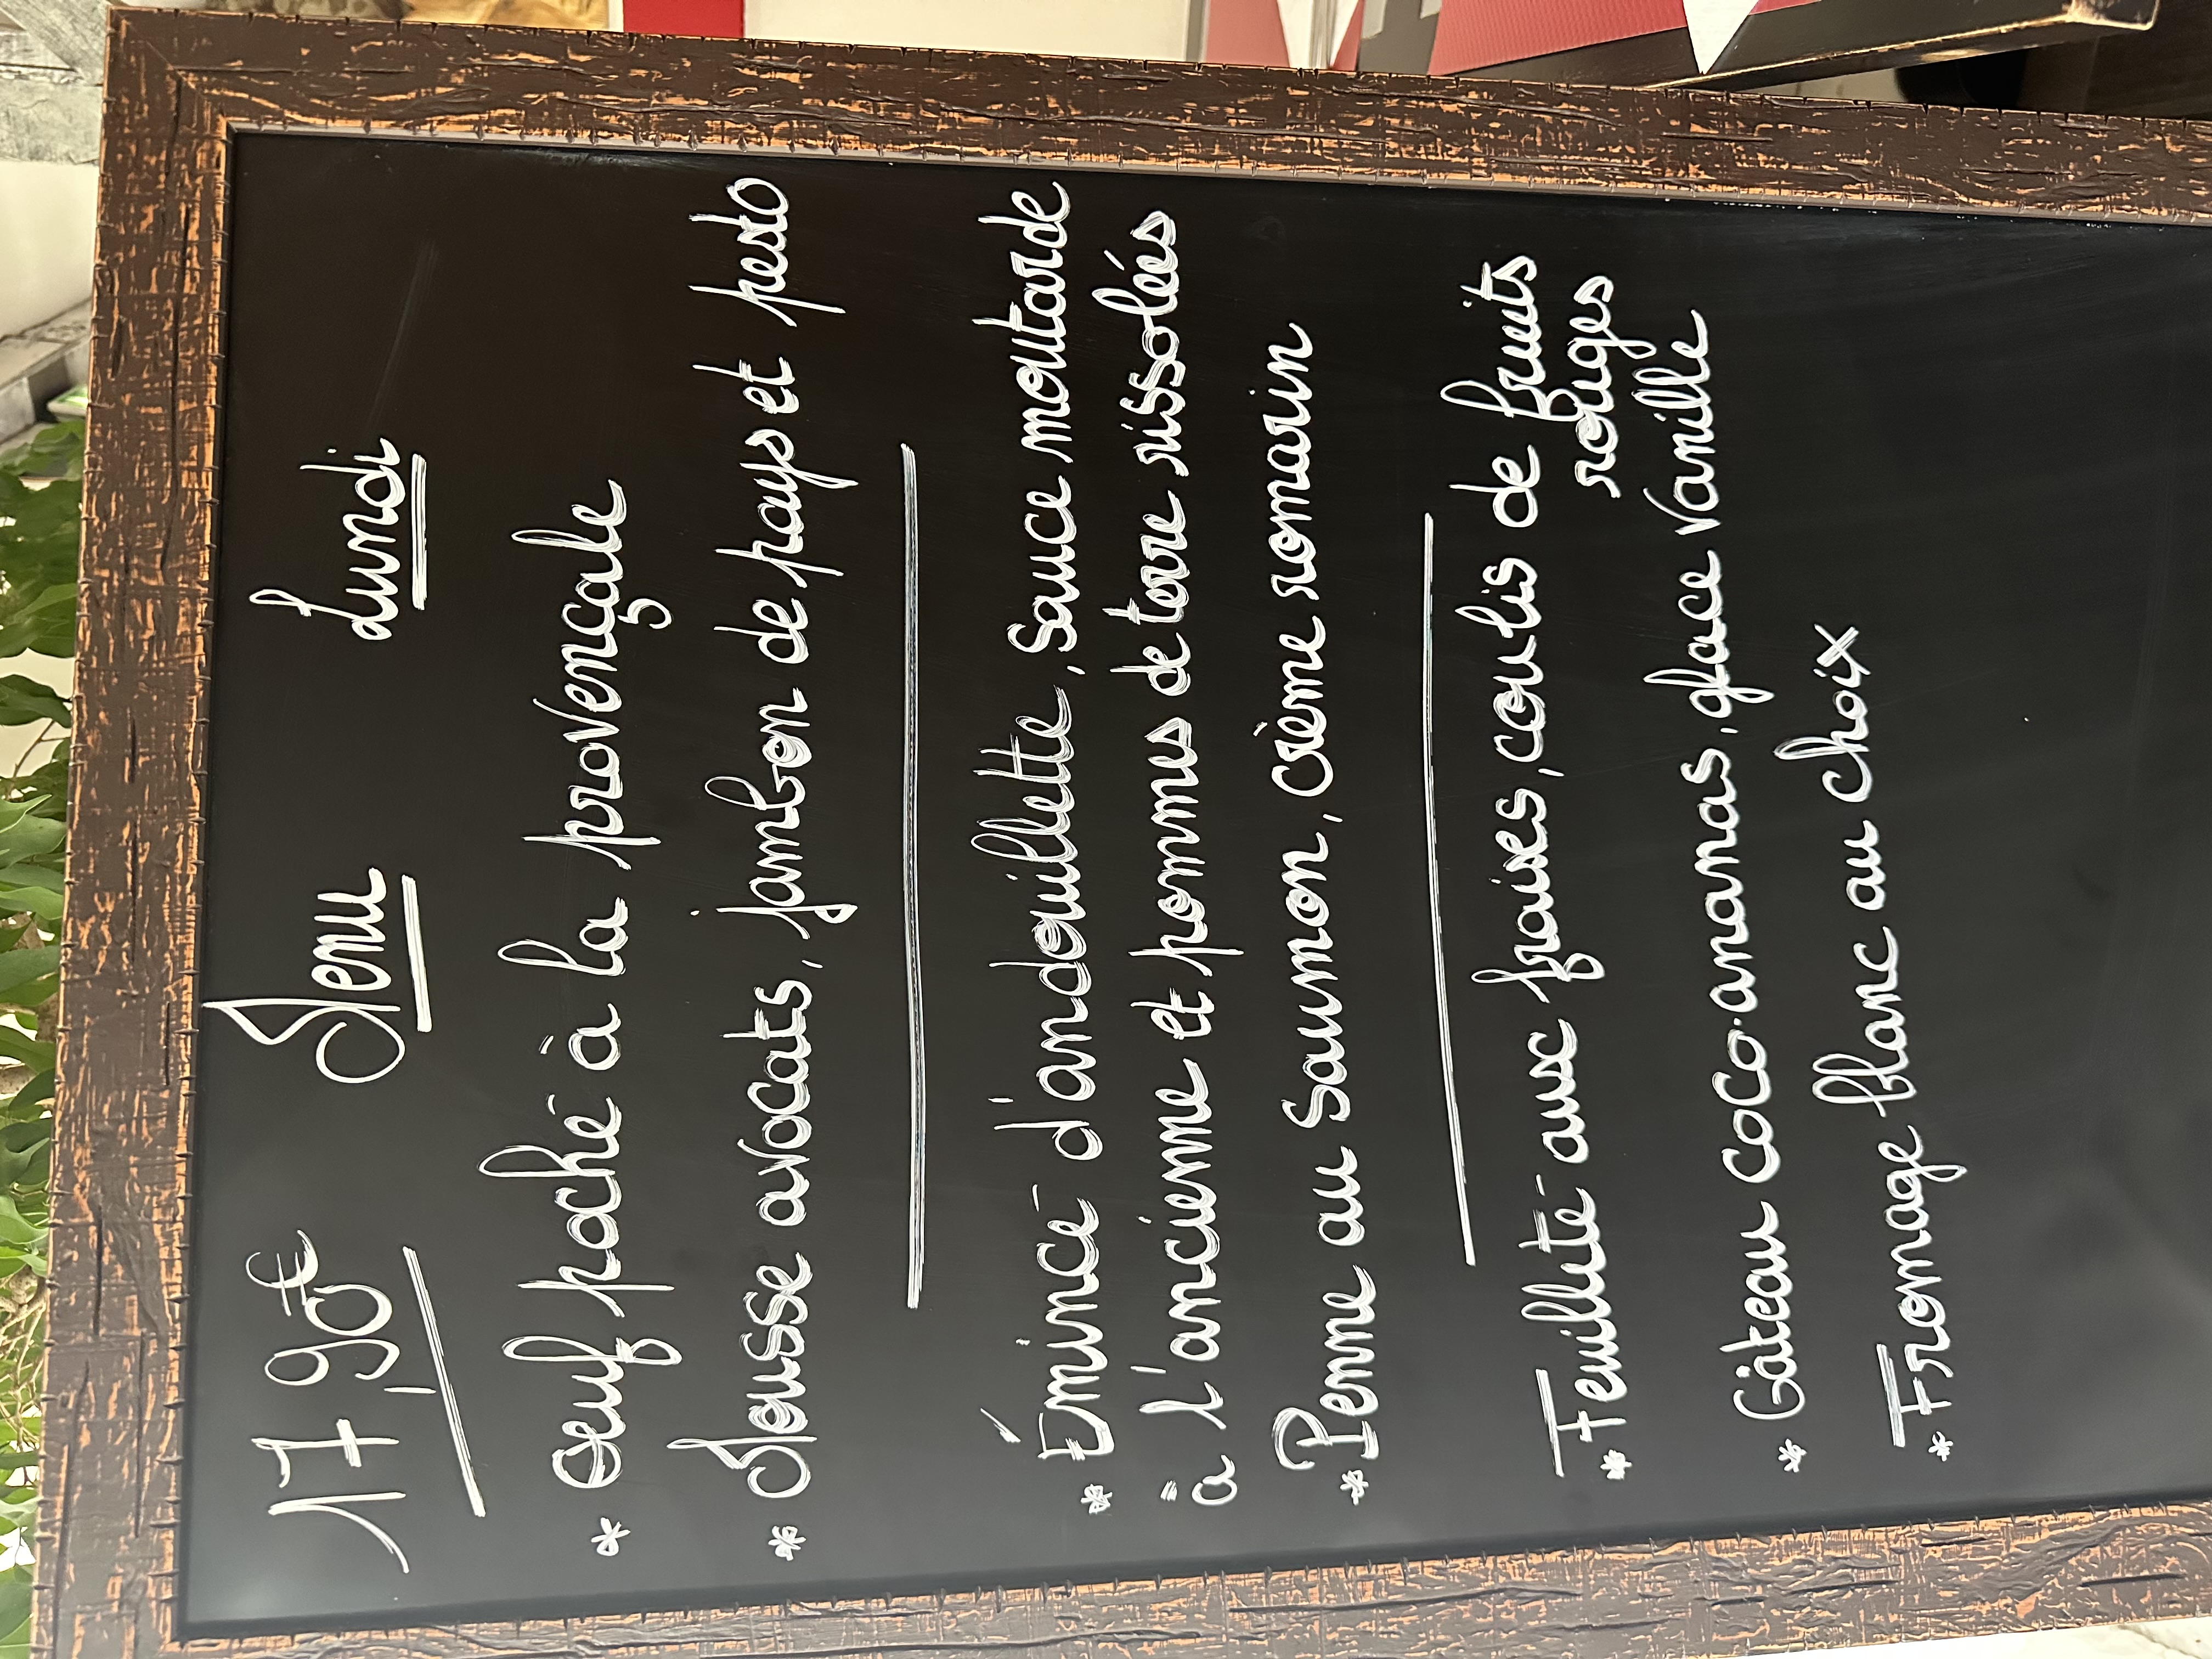 17,90€ Menu Lundi
* Oeuf poché à la provençale
* Mousse avocats, jambon de pays et pesto
* Émincé d'andouillette, sauce moutarde
à l'ancienne et pommes de terre rissolées
* Penne au saumon, crème romarin
* Feuilleté aux fraises, coulis de fruits
rouges
* Gâteau coco-ananas, glace vanille
* Fromage blanc au choix